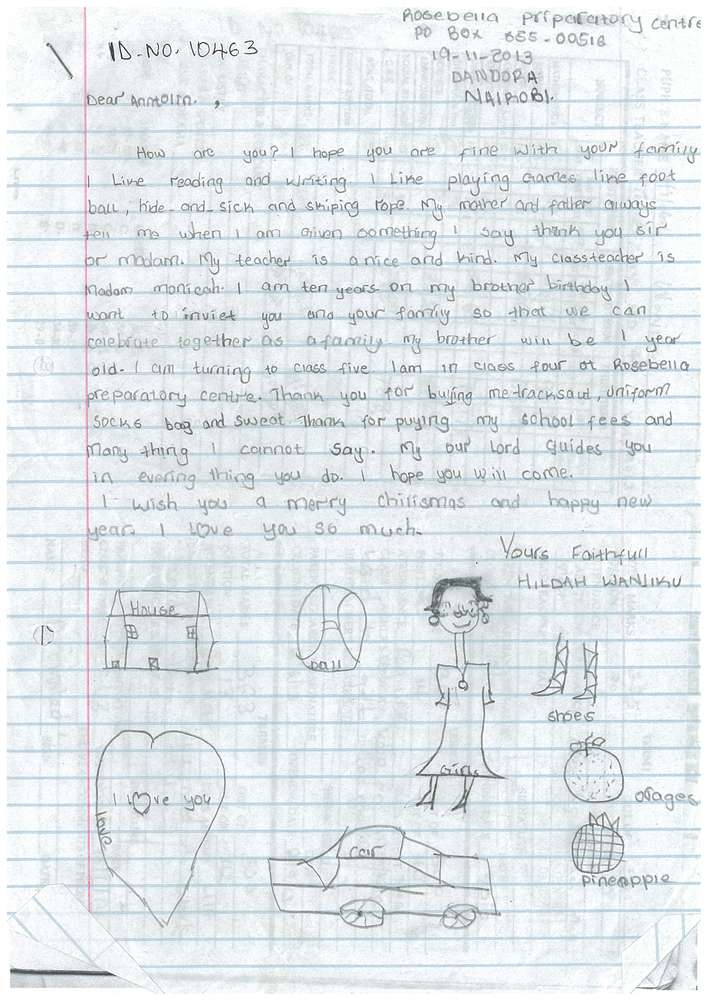 Rosebella priparatory centre
PO BOX 655-00518
ID.NO. 10463
19-11-2013
DANDORA
NAIROBI.
Dear Anntolin. ,
How are you? I hope you are fine with your family
I Like reading and writing. I Like playing Games like foot
ball, hide-and-sick and skiping rope. My mother and father always
tell me when I am given something I say thank you sir
or madam. My teacher is a nice and kind. My classteacher is
Madam monicah. I am ten years on my brother birthday I
want to inviet you and your family so that we can
celebrate together as a family my brother will be 1 year
old. I am turning to class five I am in class four at Rosebella
preparatory centre. Thank you for buying me tracksaut, uniform
socks bag and sweat Thank for puying my school fees and
Many thing I cannot say. My our Lord Guides you
in evering thing you do. I hope you will come.
I wish you a merry chilismas and happy new
year. I Love you so much.
Yours Faithfull
HILDAH WANJIKU
House
ball
Girls
shoes
I love you
love
orages
car
pineapple